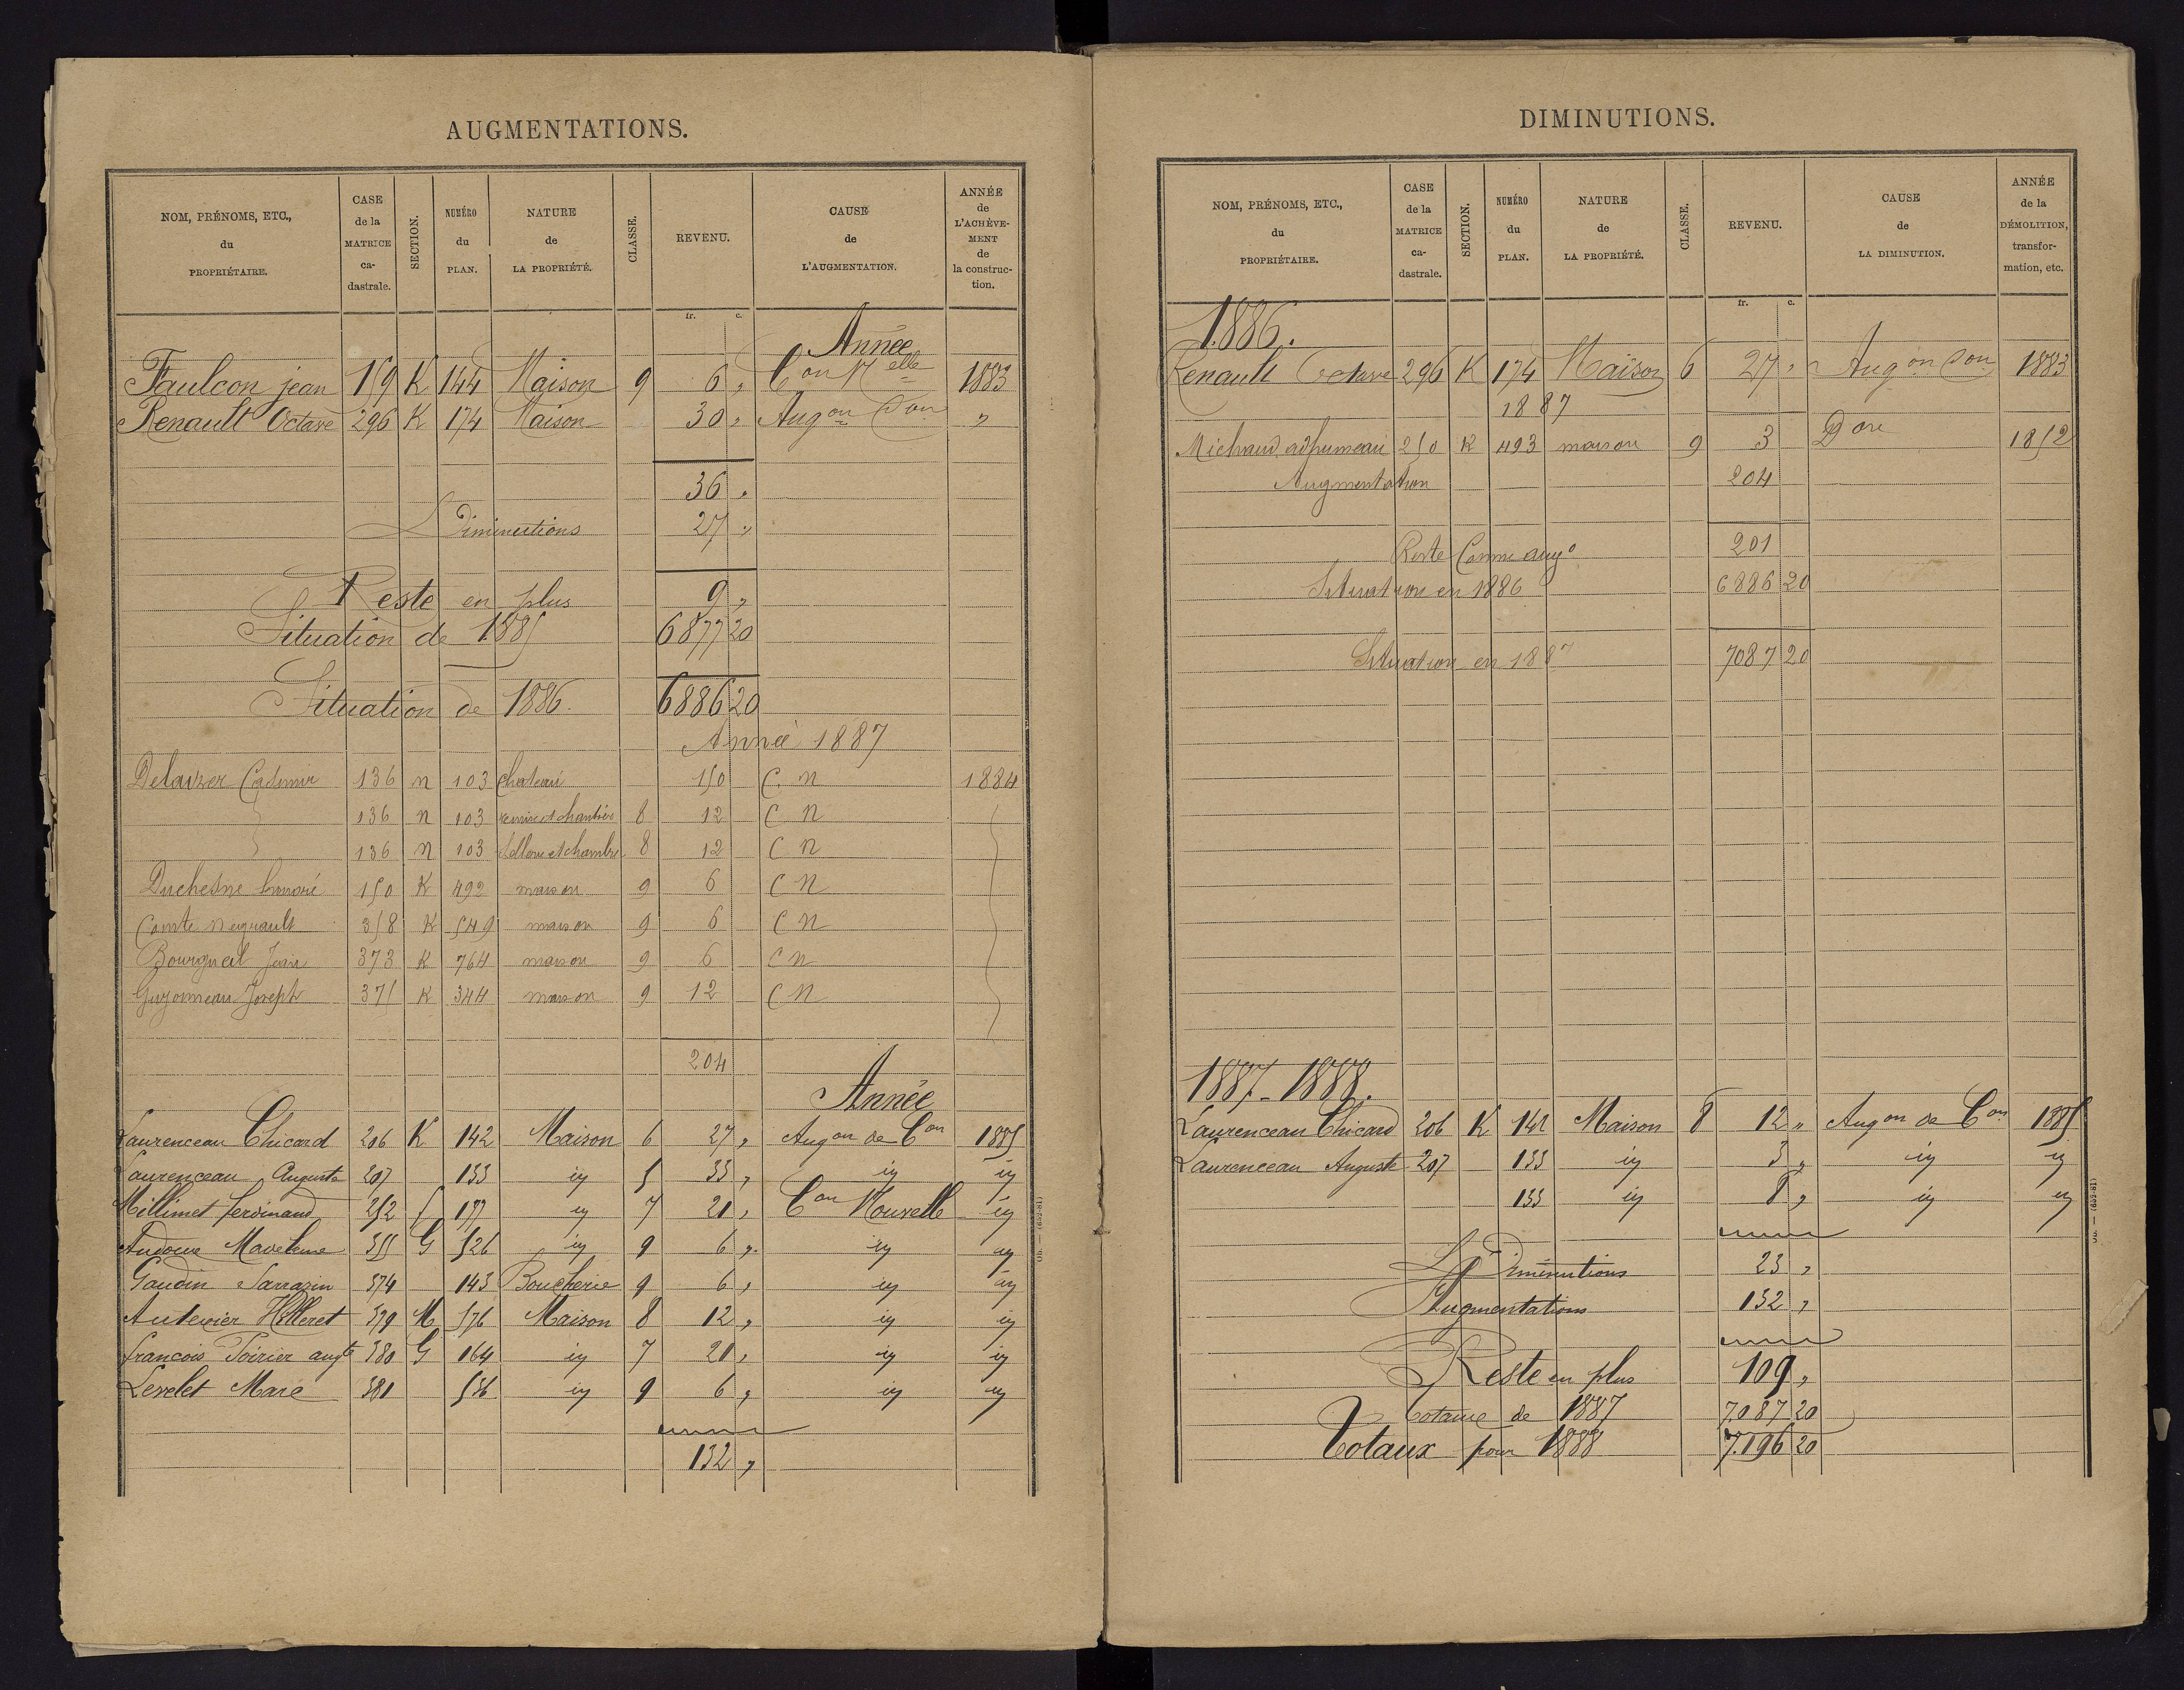 AUGMENTATIONS.
NOM, PRÉNOMS, ETC., du PROPRIÉTAIRE. CASE de la MATRICE ca-dastrale. SECTION. NUMÉRO du PLAN. NATURE de LA PROPRIÉTÉ. CLASSE. REVENU. CAUSE de L'AUGMENTATION. ANNÉE de L'ACHÈVE-MENT de la construc-tion.
fr. c.
Année
Faulcon jean 159 K 144 Maison 9 6 " Con Nelle 1883
Renault Octave 296 K 174 Maison 30 " Augon Con "
36 "
Diminutions 27 "
Reste en plus 9 "
Situation de 1885 6877 20
Situation de 1886. 6886 20
Année 1887
Delauzer Casimir 136 n 103 chateau 150 C. n 1884
136 n 103 remise et chambre 8 12 C n
136 n 103 sellerie et chambre 8 12 C n
Duchesne honoré 150 K 492 maison 9 6 C n
Comte 358 K 549 maison 9 6 C n
Bourgueil Jean 373 K 764 maison 9 6 C n
Guyonneau Joseph 375 K 344 maison 9 12 C n
204
Année
Laurenceau Chicard 206 K 142 Maison 6 27 " Augon de Con 1885
Laurenceau Auguste 207 133 id 5 33 " id id
Millimet ferdinand 252 f 177 id 7 21 " Con Nouvelle id
355 G 526 id 9 6 " id id
Gaudin Sarrazin 374 143 Boucherie 9 6 " id id
379 M 576 Maison 8 12 " id id
francois Poirier augte 380 G 164 id 7 21 " id id
Levelet Marie 381 536 id 9 6 " id id
132 "
OB. — (652-81)
DIMINUTIONS.
NOM, PRÉNOMS, ETC., du PROPRIÉTAIRE. CASE de la MATRICE ca-dastrale. SECTION. NUMÉRO du PLAN. NATURE de LA PROPRIÉTÉ. CLASSE. REVENU. CAUSE de LA DIMINUTION. ANNÉE de la DÉMOLITION, transfor-mation, etc.
fr. c.
1886.
Renault Octave 296 K 174 Maison 6 27 " Augon Con 1883
1887
Michaud 250 K 493 maison 9 3 Don 1852
Augmentation 204
201
Reste Comme augo
Situation en 1886 6886 20
Situation en 1887 7087 20
1887-1888.
Laurenceau Chicard 206 K 142 Maison 8 12 " Augon de Con 1885
Laurenceau Auguste 207 133 id 3 " id id
133 id 8 " id id
Diminutions 23 "
Augmentations 132 "
Reste en plus 109 "
Totaux de 1887 7.087 20
Totaux pour 1888 7.196 20
OB. — (652-81)